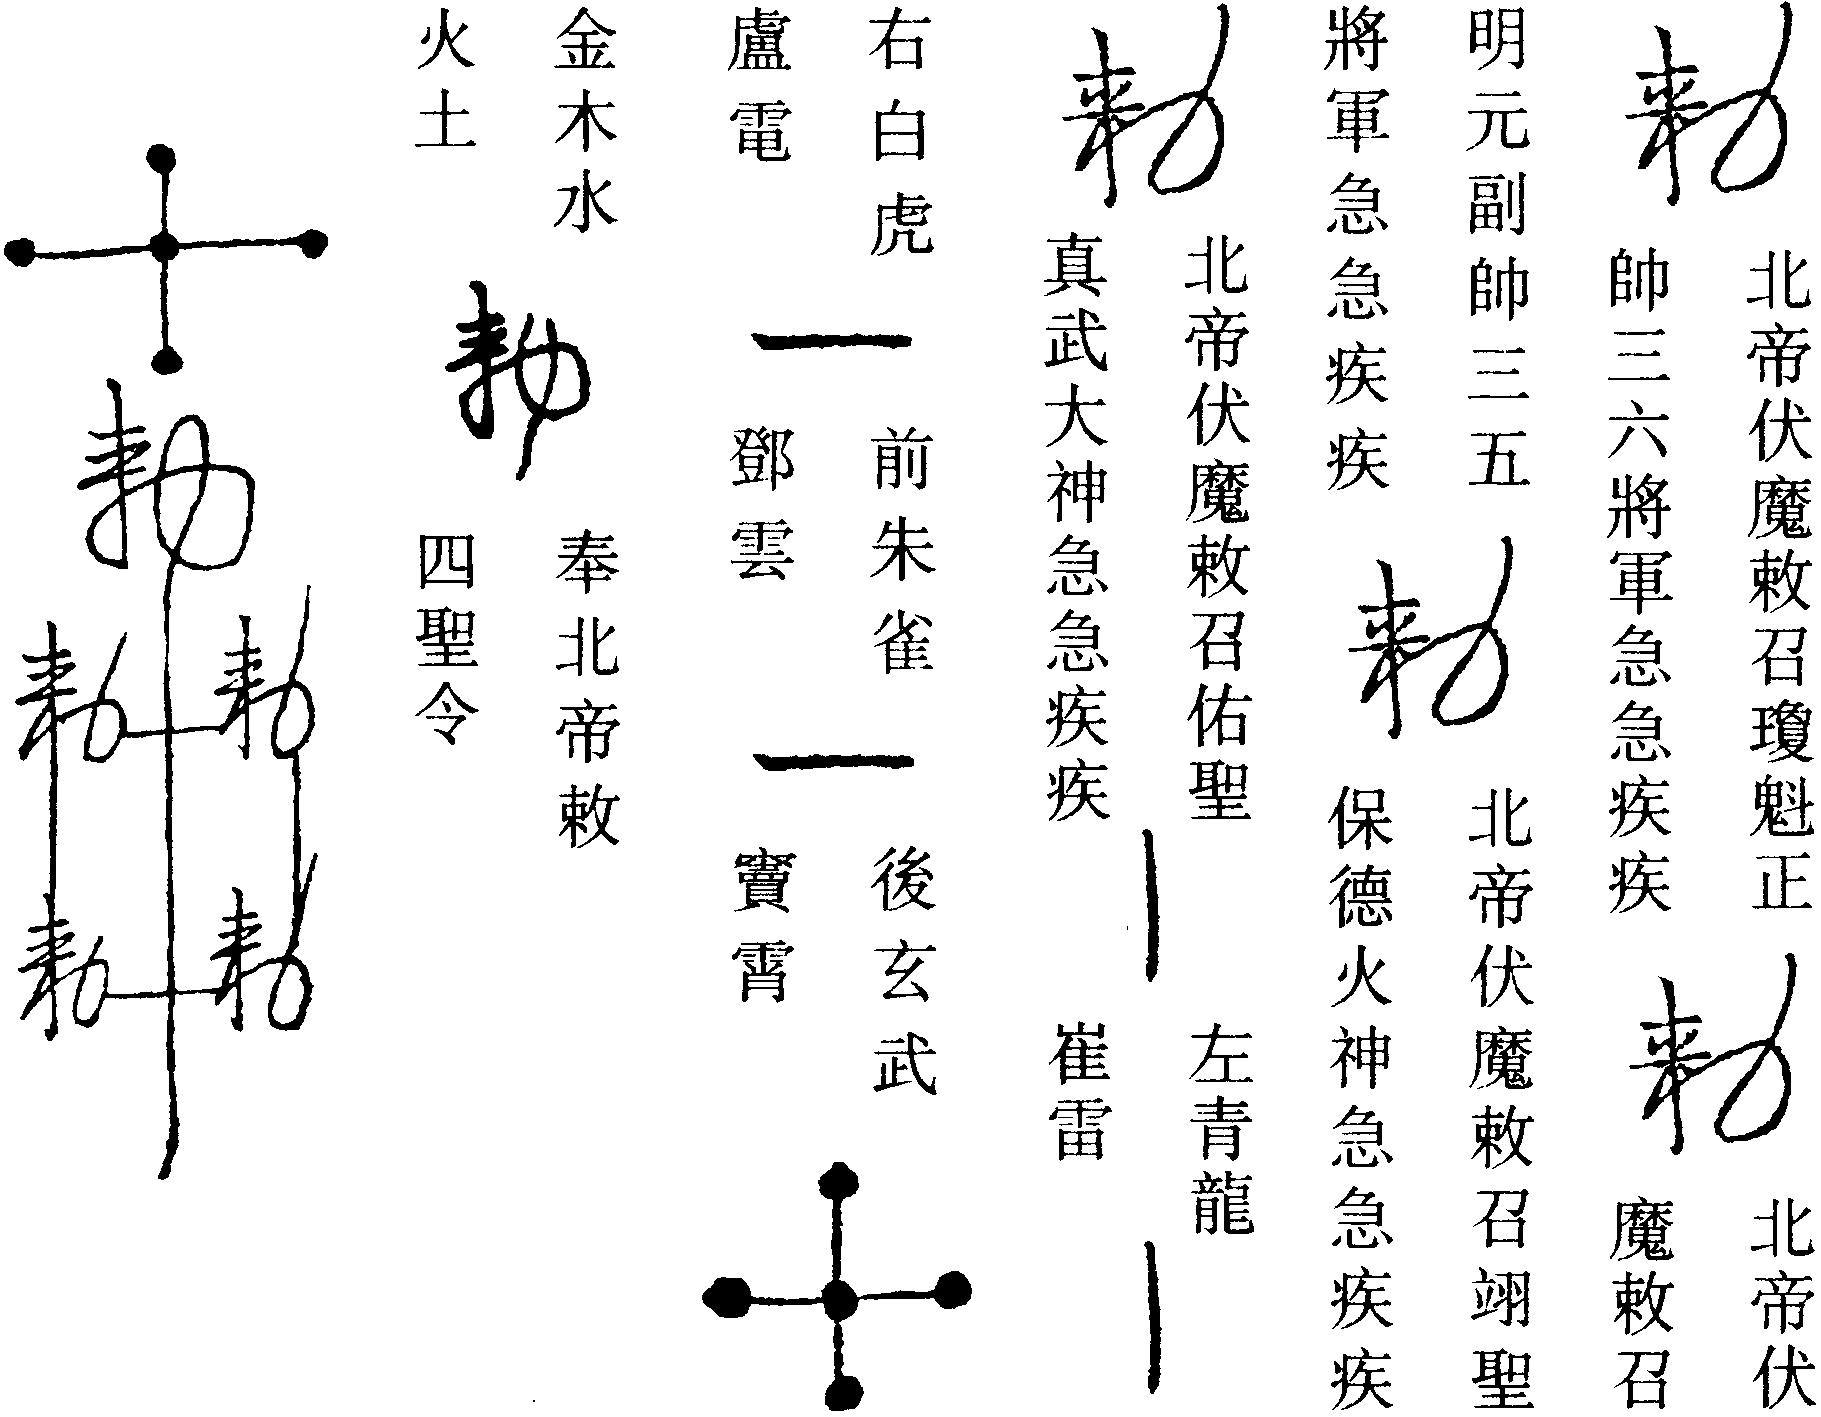 勑
北帝伏魔敕召瓊魁正
帥三六將軍急急疾疾
勑
北帝伏
魔敕召
明元副帥三五
將軍急急疾疾
勑
北帝伏魔敕召翊聖
保德火神急急疾疾
勑
北帝伏魔敕召佑聖
真武大神急急疾疾
左青龍
崔雷
右白虎
盧電
前朱雀
鄧雲
後玄武
竇霄
金木水
火土
勑
奉北帝敕
四聖令
勑
勑
勑
勑
勑